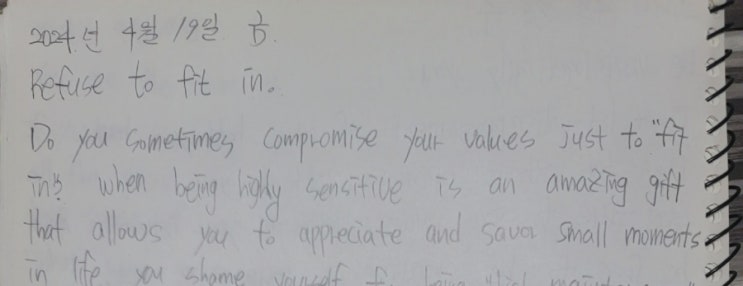 2024년 4월 19일
Refuse to fit in.
Do you sometimes compromise your values just to "fit
in"? when being highly sensitive is an amazing gift
that allows you to appreciate and savor small moments
in life you shame yourself